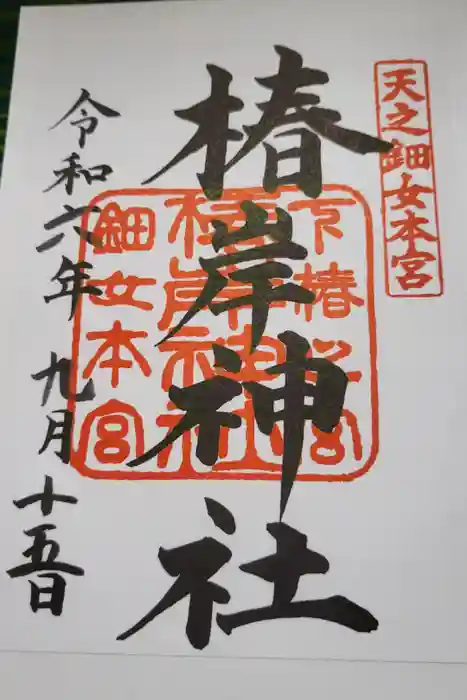 天之鈿女本宮
椿岸神社
鈿女本宮
令和六年九月十五日